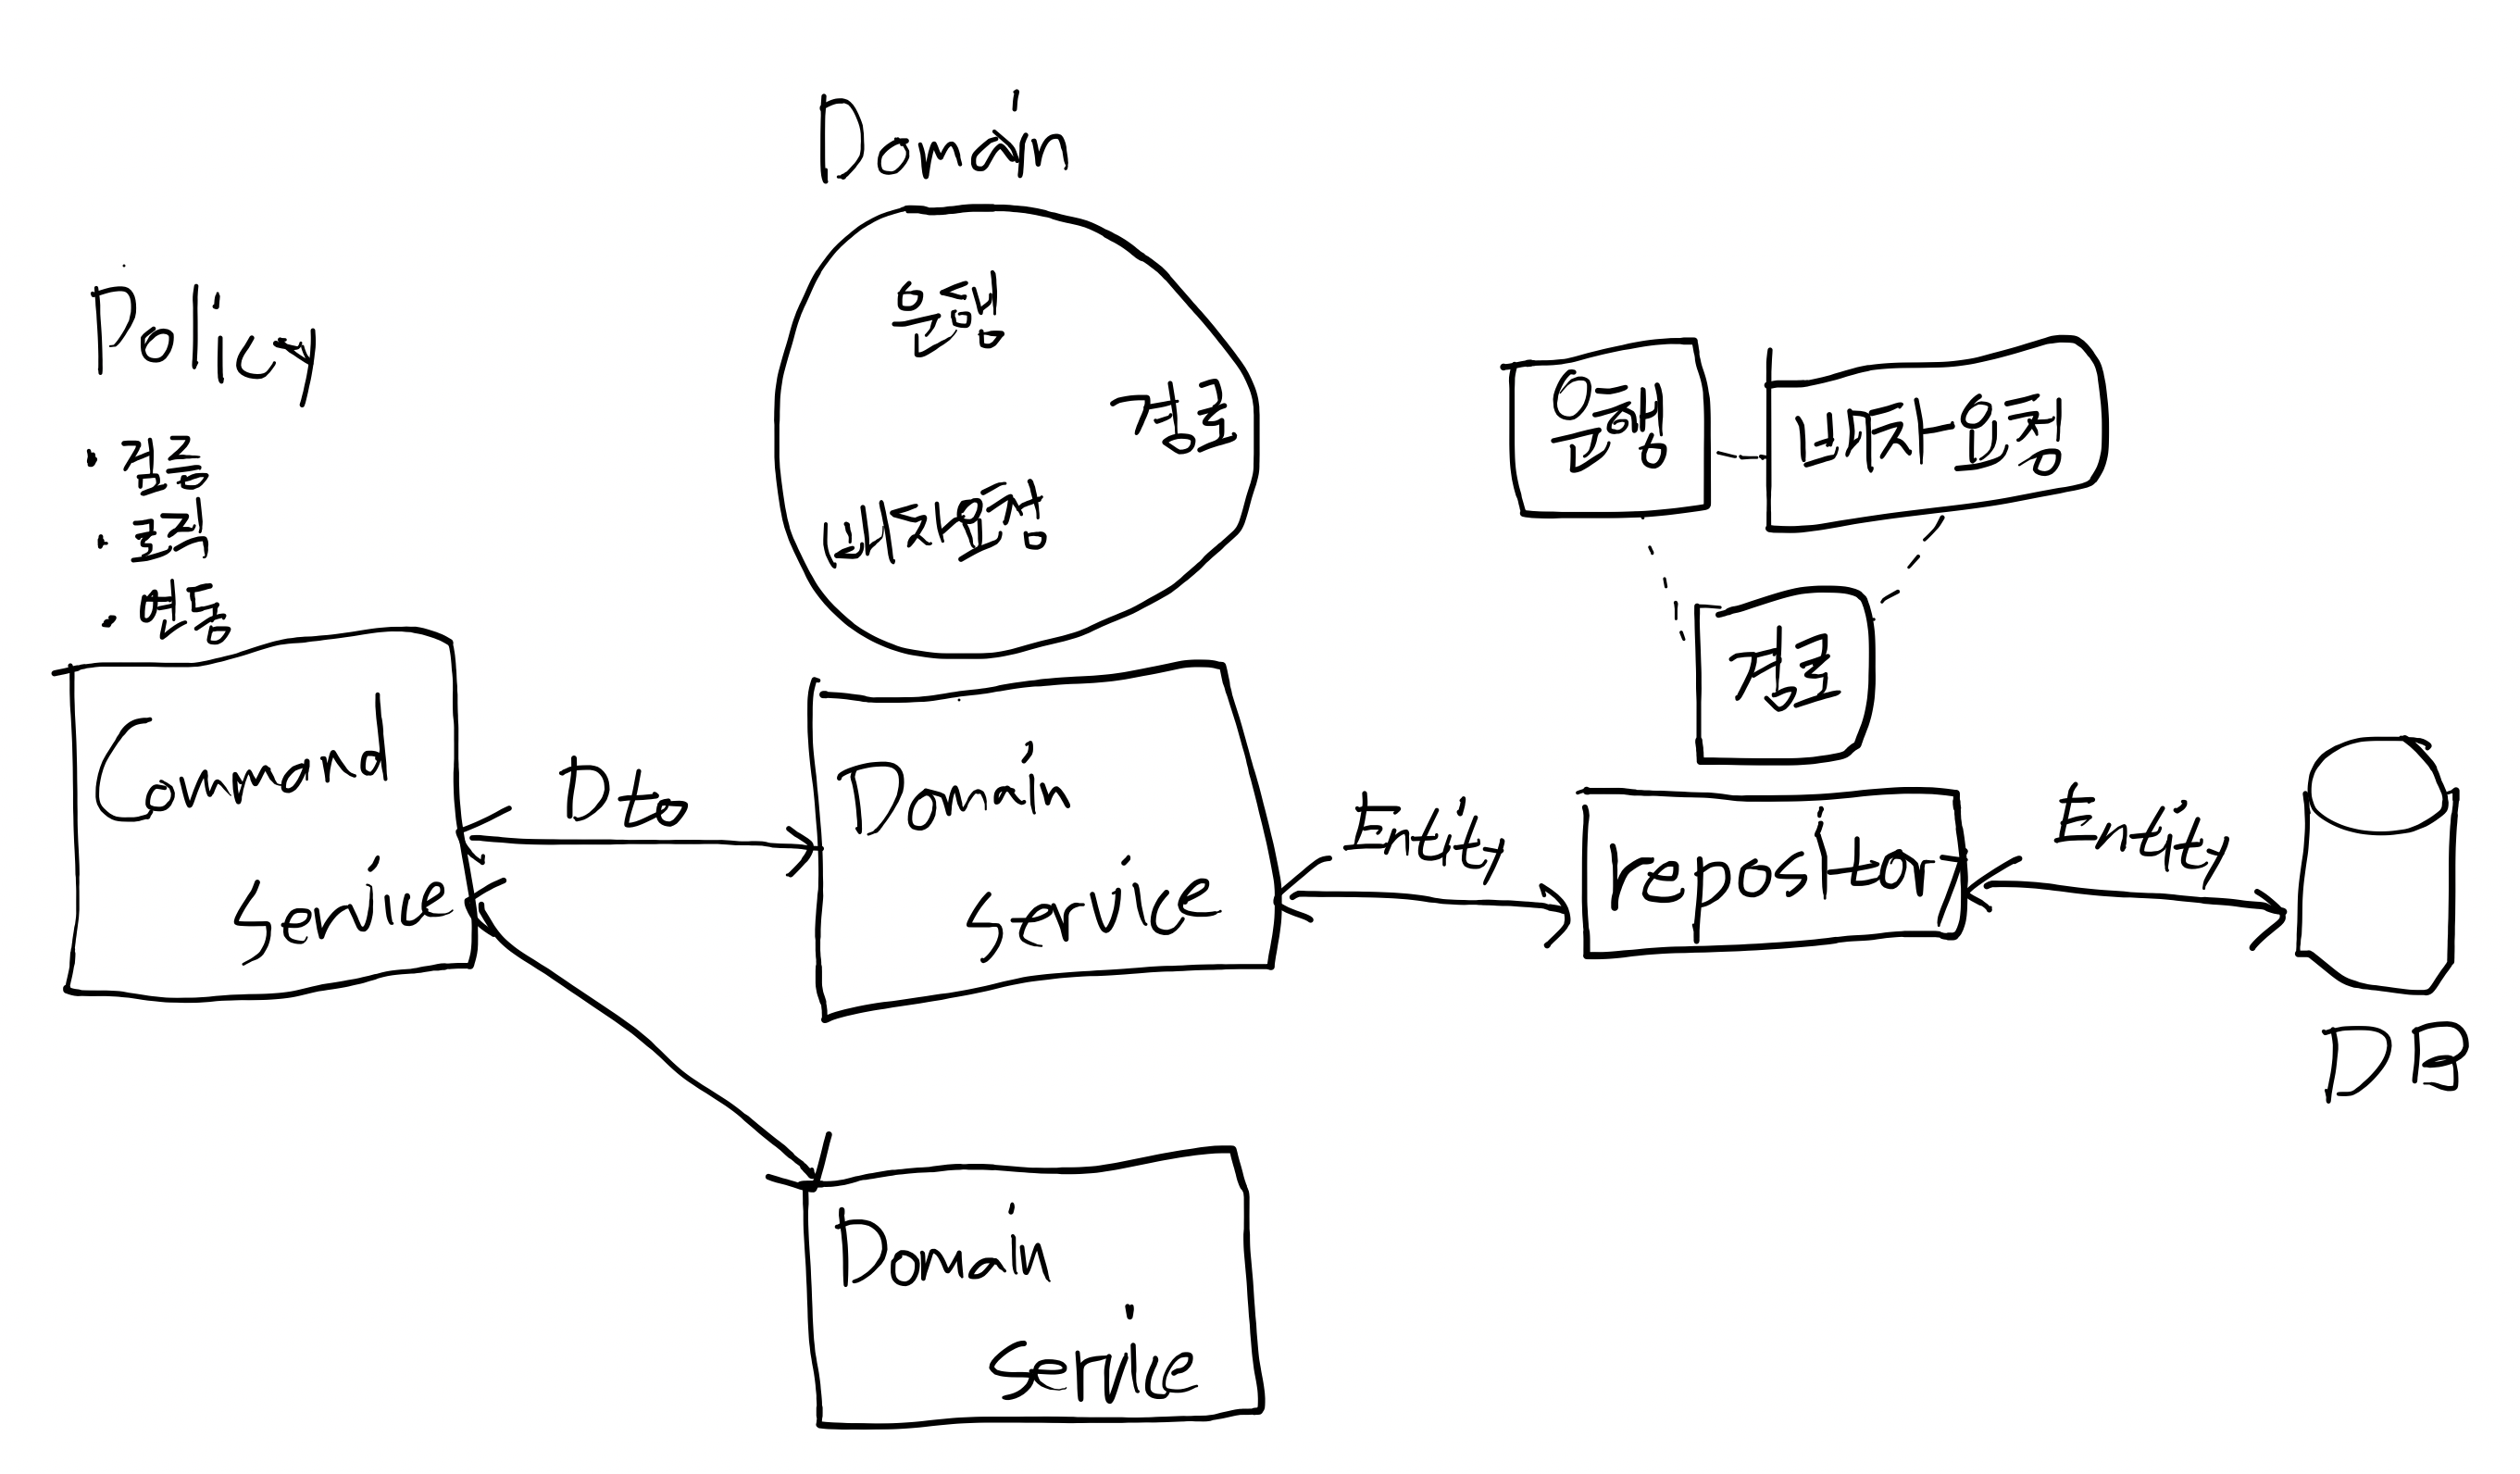 Domain
Policy
은행
· 검증
· 로직
· 연동
은행
Command
service
Dto
Domain
service
Entity
repository
Entity
DB
Domain
service